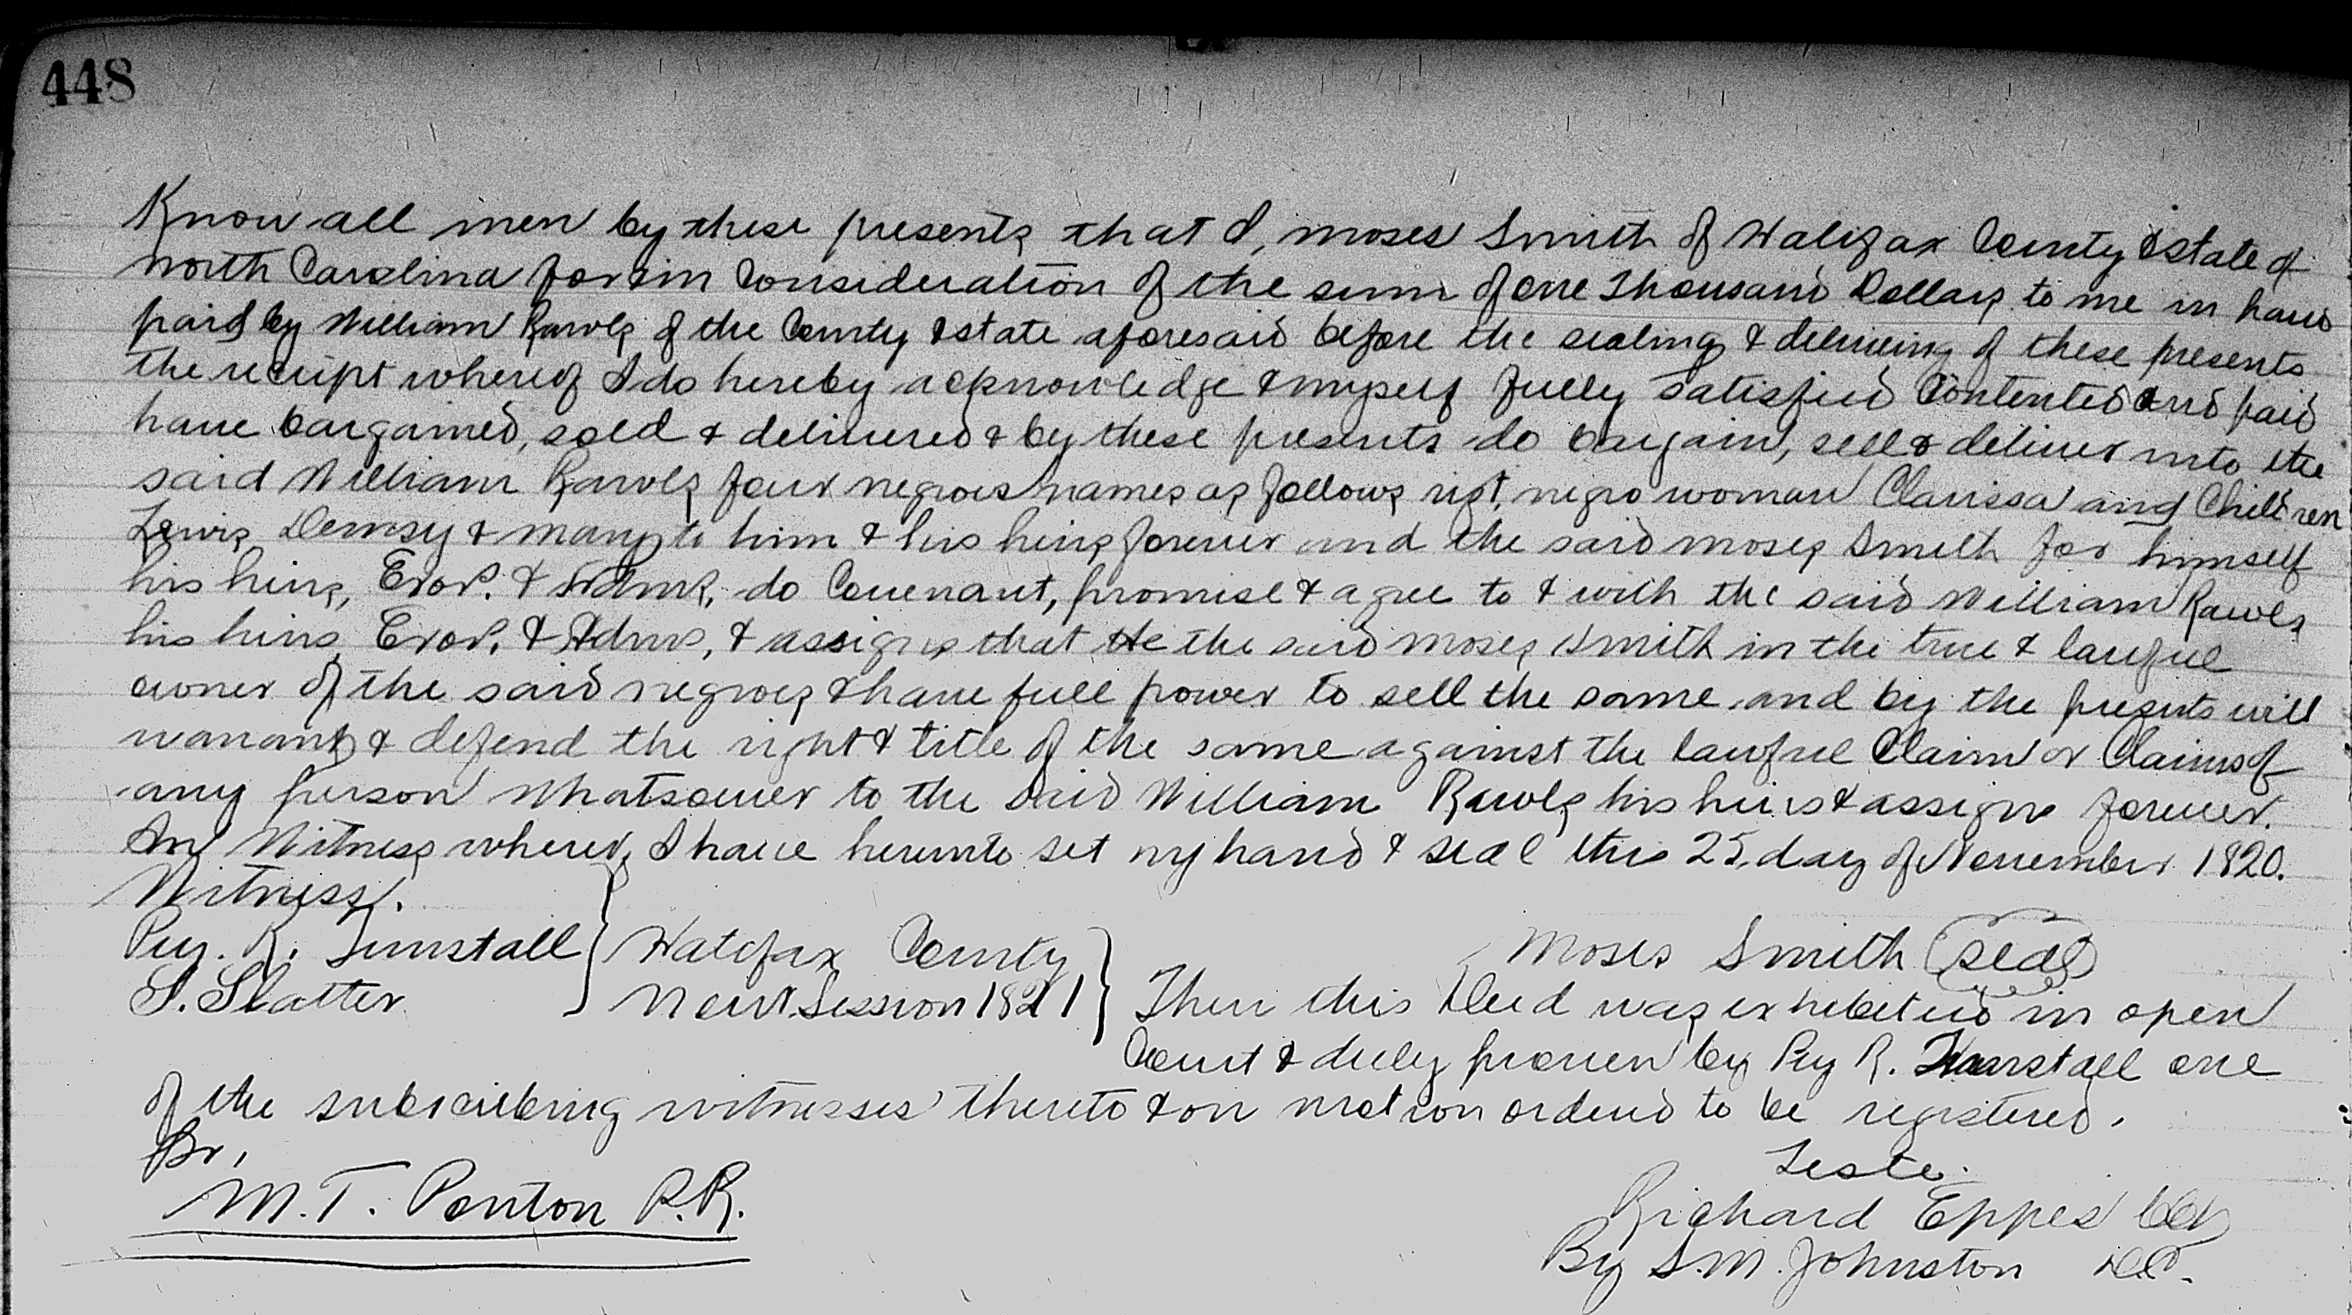 448
Know all men by these presents that I, Moses Smith of Halifax County & State of
North Carolina for & in Consideration of the sum of one Thousand Dollars to me in hand
paid by William Rawls of the County & State aforesaid before the sealing & delivering of these presents
the receipt whereof I do hereby acknowledge & myself fully satisfied Contented and paid
have bargained, sold & delivered & by these presents do bargain, sell & deliver unto the
said William Rawls four negroes names as follows negro woman Clarissa and Children
Lewis Demsy & Mary to him & his heirs forever and the said Moses Smith for himself
his heirs, Exor. & Admr, do Covenant, promise & agree to & with the said William Rawls
his heirs Exor. & Admr, & assigns that He the said Moses Smith in the true & lawful
owner of the said negroes & have full power to sell the same and by the presents will
warrant & defend the right & title of the same against the lawful Claim or Claims of
any person whatsoever to the said William Rawls his heirs & assigns forever.
In Witness whereof I have hereunto set my hand & seal this 25, day of November 1820.
Witness.
Pey. R. Tunstall Halifax County Moses Smith Seal
S. Slatter Novr. Session 1821 Then this Deed was exhibited in open
Court & duly proven by Pey R. Tunstall one
of the subscribing witnesses thereto & on motion ordered to be registered.
Teste.
M. T. Ponton P.R. Richard Eppes Clk
By S. M. Johnston D.C.